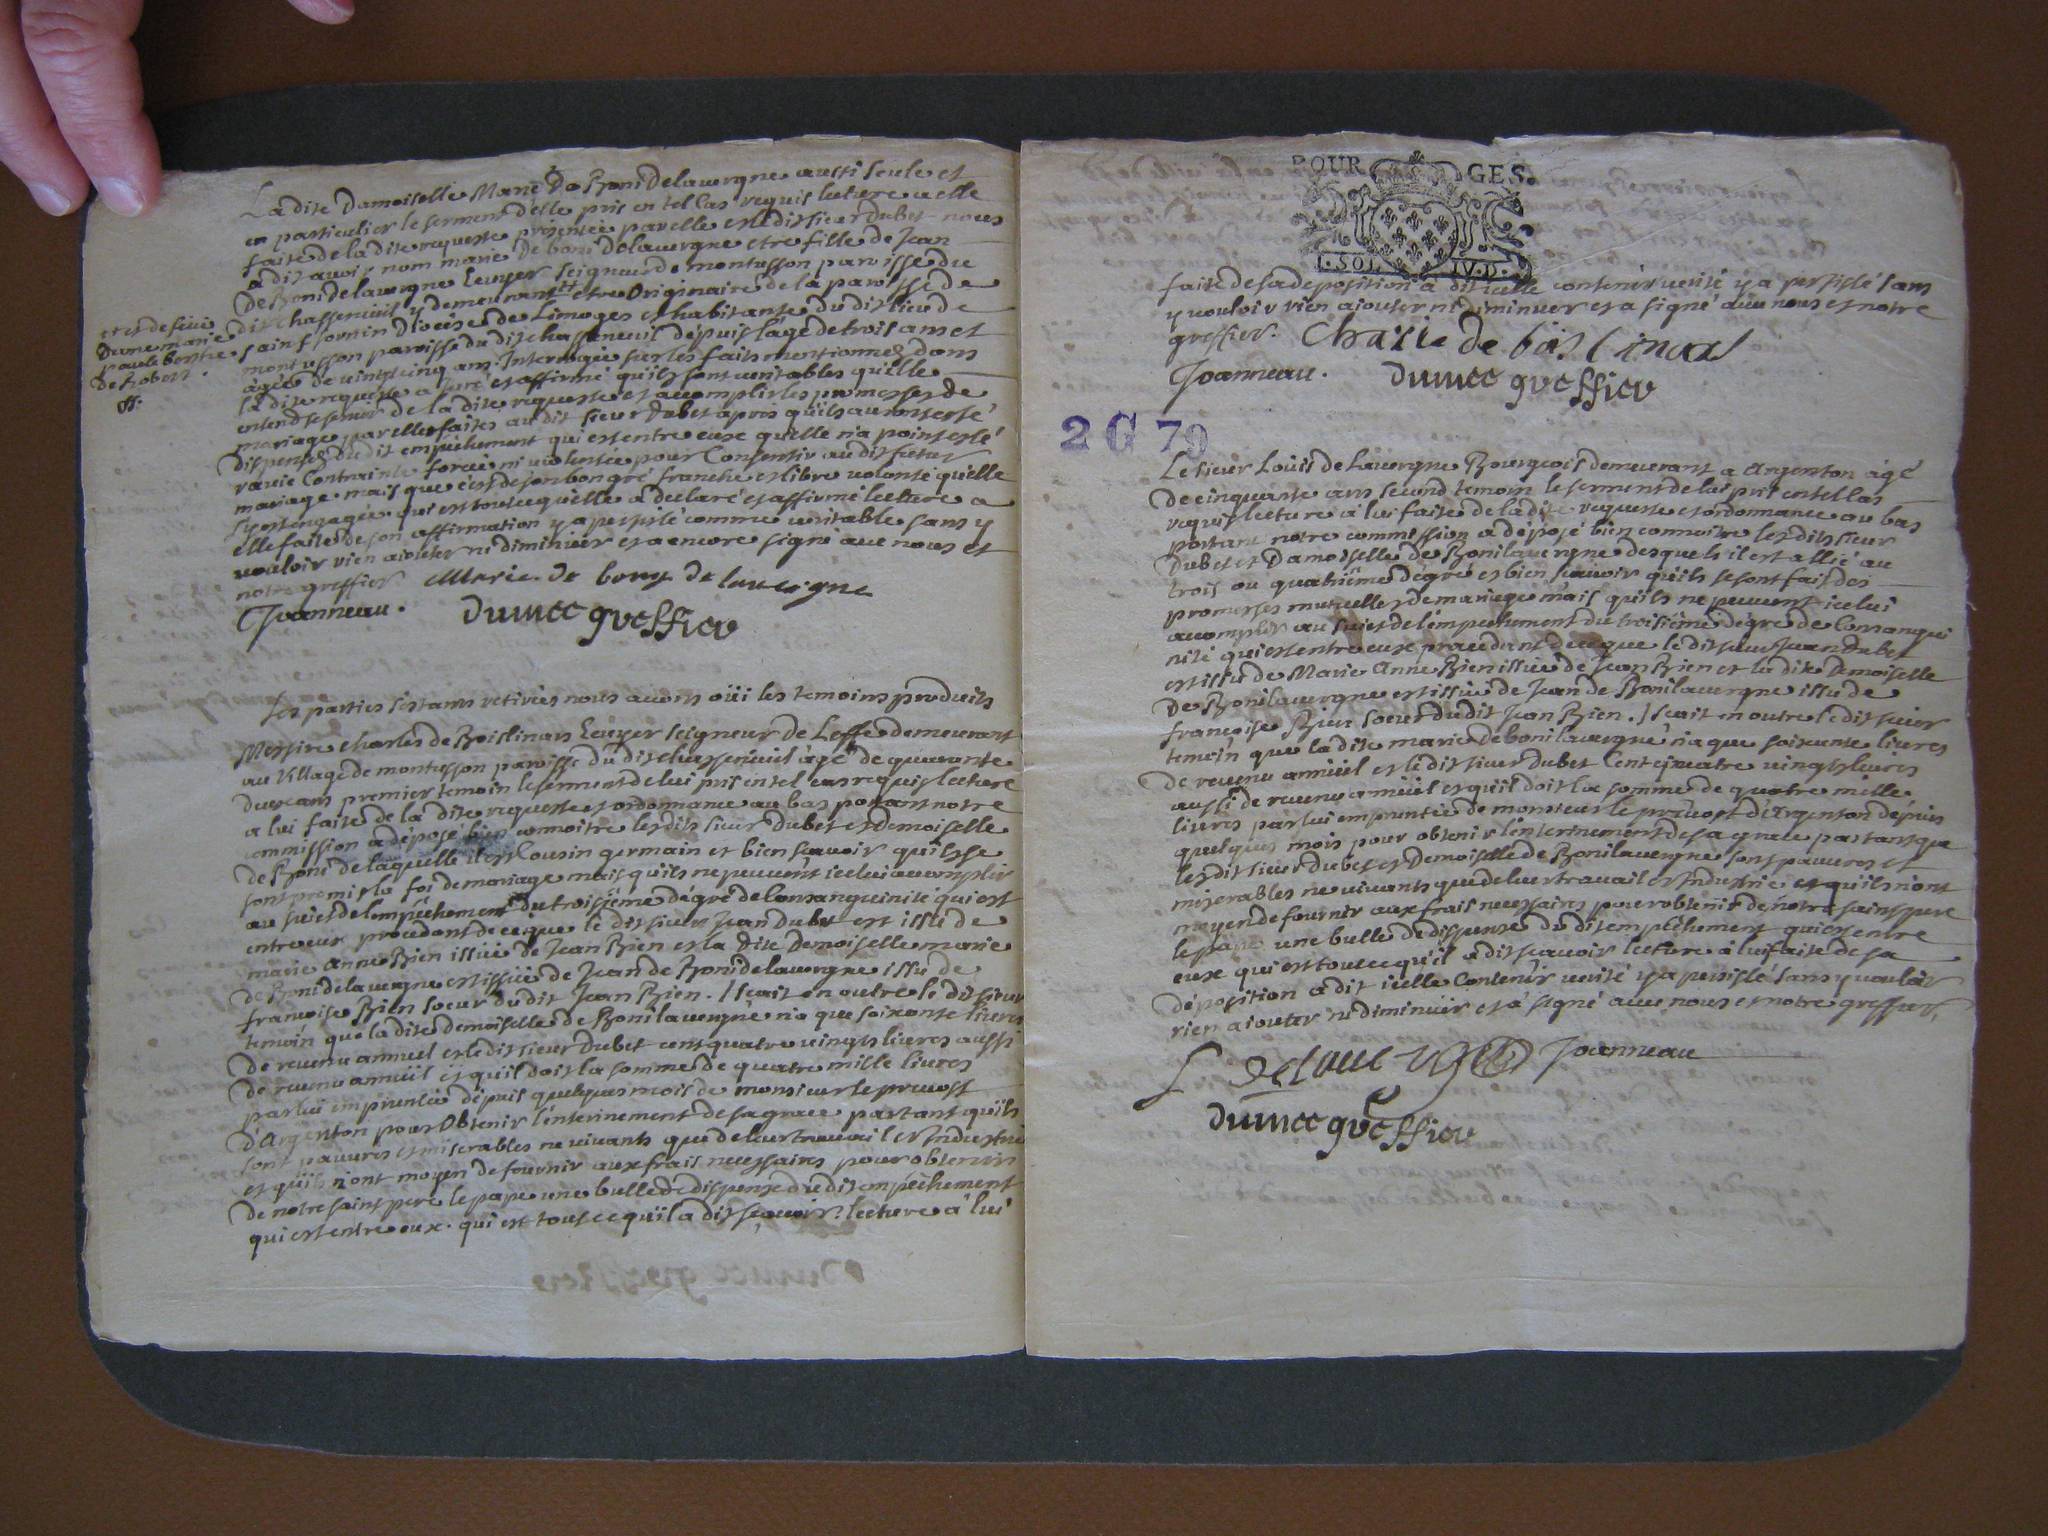 La dite Damoiselle Marie De Boni Delavergne aussi seule et
en particulier le serment delle pris en tel cas requis lecture a elle
faite de la dite requeste présentée par elle et le dit sieur Dubet nous
a dit avoir nom marie de boni Delavergne etre fille de Jean
De Boni delavergne Ecuyer Seigneur de montusson paroisse du
dit Chasseneuil y demeurant # etre Originaire de la paroisse de
saint sornin Diocise de Limoges et habitante du dit lieu de
montusson paroisse du dit chasseneuil dépuis lage de trois ans et
agée de vingtcinq ans. Interrogée sur les faits mentionnés dans
la dite requeste a juré et affirmé quils sont veritables qu'elle
entend se servir de la dite requeste et accomplir les promesses de
mariage par elle faites au dit sieur Dubet apres quils auront esté
dispensés du dit empéchement qui est entre eux quelle n'a point esté
ravie Contrainte forcée ni violentée pour Consentir au dit futur
mariage mais que c'est de son bon gré franche et libre volonté qu'elle
s'y est engagée. qui est tout ce qu'elle a declaré et affirmé lecture a
elle faite de son affirmation y a persisté comme veritable sans y
vouloir rien ajouter ni diminuer et a encore signé avec nous et
notre greffier Marie de bony de lavergne
Joanneau. dumec greffier
et de
Dame marie
paule berthe
de Robert
Les parties s'estants retirées nous avons oüi les temoins produits
Messire charles de Boislinars Ecuyer seigneur de Leffe demeurant
au Village de montusson paroisse du dit chasseneuil agé de quarante
deux ans premier temoin le serment de lui pris en tel cas requis lecture
a lui faite de la dite requeste et ordonnance au bas portant notre
commission a déposé bien connoitre les dits sieur Dubet et Demoiselle
de Boni de laquelle il est Cousin germain et bien sçavoir qu'ils se
sont promis la foi de mariage mais qu'ils ne peuvent icelui accomplir
au sujet de l'empéchement du troisiéme dégré de Consanguinité qui est
entre eux procédant de ce que le dit sieur Jean Dubet est issu de
marie Anne Bien issüe de Jean Bien et la dite Demoiselle marie
de Boni de lavergne est issüe de Jean de Boni delavergne issu de
françoise Bien soeur du dit Jean Bien. Sçait en outre le dit sieur
temoin que la dite demoiselle de Boni lavergne n'a que soixante livres
de revenu annuel et le dit sieur Dubet cent quatre vingts livres aussi
de revenu annüel et qu'il doit la somme de quatre mille livres
par lui empruntée dépuis quelques mois de monsieur le prevost
d'Argenton pour Obtenir l'enterinement de sa grace partant qu'ils
sont pauvres et miserables ne vivants que de leur travail et Industrie
et qu'ils n'ont moyen de fournir aux frais necessaires pour obtenir
de notre saint pere le pape une bulle de dispense du dit empéchement
qui est entre eux. qui est tout ce qu'il a dit sçavoir. lecture à lui
BOURGES.
1. SOL IV. D.
faite de sa deposition a dit icelle contenir verité y a persisté sans
y vouloir rien ajouter ni diminuer et a signé avec nous et notre
greffier. Charle de bois linard
Joanneau. dumec greffier
2 G 79
Le sieur Loüis de Lavergne Bourgeois demeurant a Argenton agé
de cinquante ans second temoin le serment de lui pris en tel cas
requis lecture a lui faite de la dite requeste et ordonnance au bas
portant notre commission a déposé bien connoitre les dits sieur
Dubet et Damoiselle de Boni lavergne desquels il est allié au
trois ou quatriéme dégré et bien sçavoir qu'ils se sont fait des
promesses mutuelles de mariage mais qu'ils ne peuvent icelui
accomplir au sujet de l'empéchement du troisiéme dégré de Consangui
nité qui est entre eux procedant de ce que le dit sieur Jean Dubet
est issu de Marie Anne Bien issüe de Jean Bien et la dite Demoiselle
De Boni lavergne est issüe de Jean de Boni lavergne issu de
françoise Bien soeur du dit Jean Bien. Sçait en outre le dit sieur
temoin que la dite marie de boni lavergne n'a que soixante livres
de revenu annüel et le dit sieur Dubet Cent quatre vingts livres
aussi de revenu annüel et qu'il doit la somme de quatre mille
livres par lui empruntée de monsieur le prevost d'Argenton dépuis
quelques mois pour obtenir l'enterinement de sa grace partant que
les dit sieur Dubet et Demoiselle de Boni lavergne sont pauvres et
miserables ne vivants que de leur travail et Industrie et qu'ils n'ont
moyen de fournir aux frais necessaires pour obtenir de notre saint pere
le pape une bulle de dispense du dit empéchement qui est entre
eux qui est tout ce qu'il a dit sçavoir lecture à lui faite de sa
déposition a dit icelle Contenir verité y a persisté sans y vouloir
rien ajouter ni diminüer et a signé avec nous et notre greffier.
L Delavergne Joanneau
dumec greffier